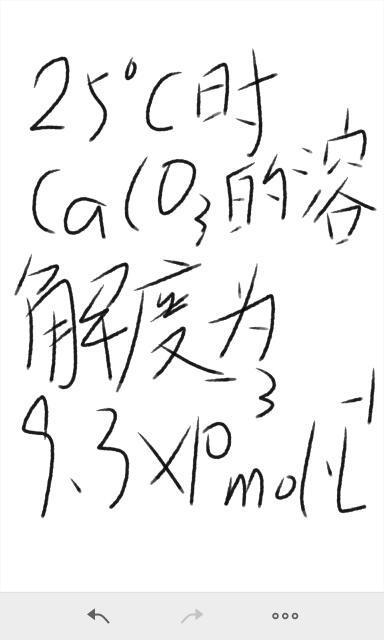 25°C时
CaCO₃的溶
解度为
9.3×10⁻³mol·L⁻¹